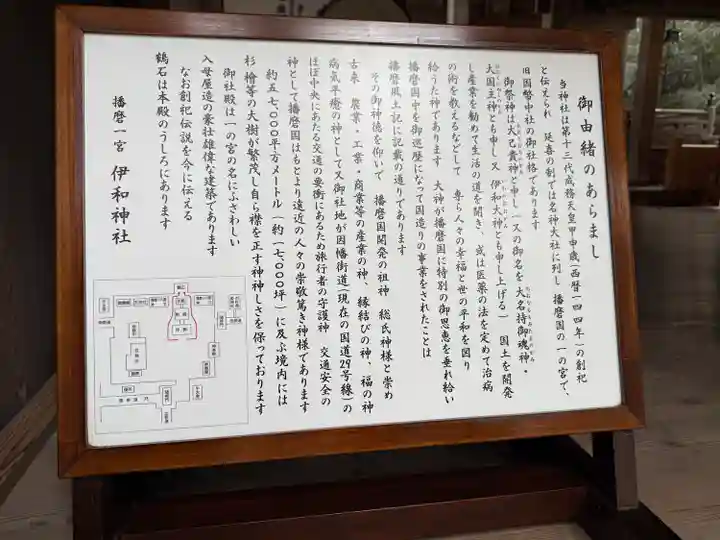 御由緒のあらまし
当神社は第十三代成務天皇甲申歳(西暦一四四年)の創祀
と伝えられ　延喜の制では名神大社に列し　播磨国の一の宮で、
旧国幣中社の御社格であります
御祭神は大己貴神と申し(又の御名を大名持御魂神・
大国主神とも申し又　伊和大神とも申し上げる)　国土を開発
し産業を勧めて生活の道を開き、或は医薬の法を定めて治病
の術を教えるなどして　専ら人々の幸福と世の平和を図り
給うた神であります　大神が播磨国に特別の御恩恵を垂れ給い
播磨国中を御巡歴になって国造りの事業をされたことは
播磨風土記に記載の通りであります
その御神徳を仰いで　播磨国開発の祖神　総氏神様と崇め
古来　農業・工業・商業等の産業の神、縁結びの神、福の神
病気平癒の神として又御社地が因幡街道(現在の国道29号線)の
ほぼ中央にあたる交通の要衝にあるため旅行者の守護神　交通安全の
神として播磨国はもとより遠近の人々の崇敬篤き神様であります
約五七,〇〇〇平方メートル(約一七,〇〇〇坪)に及ぶ境内には
杉　檜等の大樹が繁茂し自ら襟を正す神神しさを保っております
御社殿は一の宮の名にふさわしい
入母屋造の豪壮雄偉な建築であります
なお創祀伝説を今に伝える
鶴石は本殿のうしろにあります
播磨一宮　伊和神社